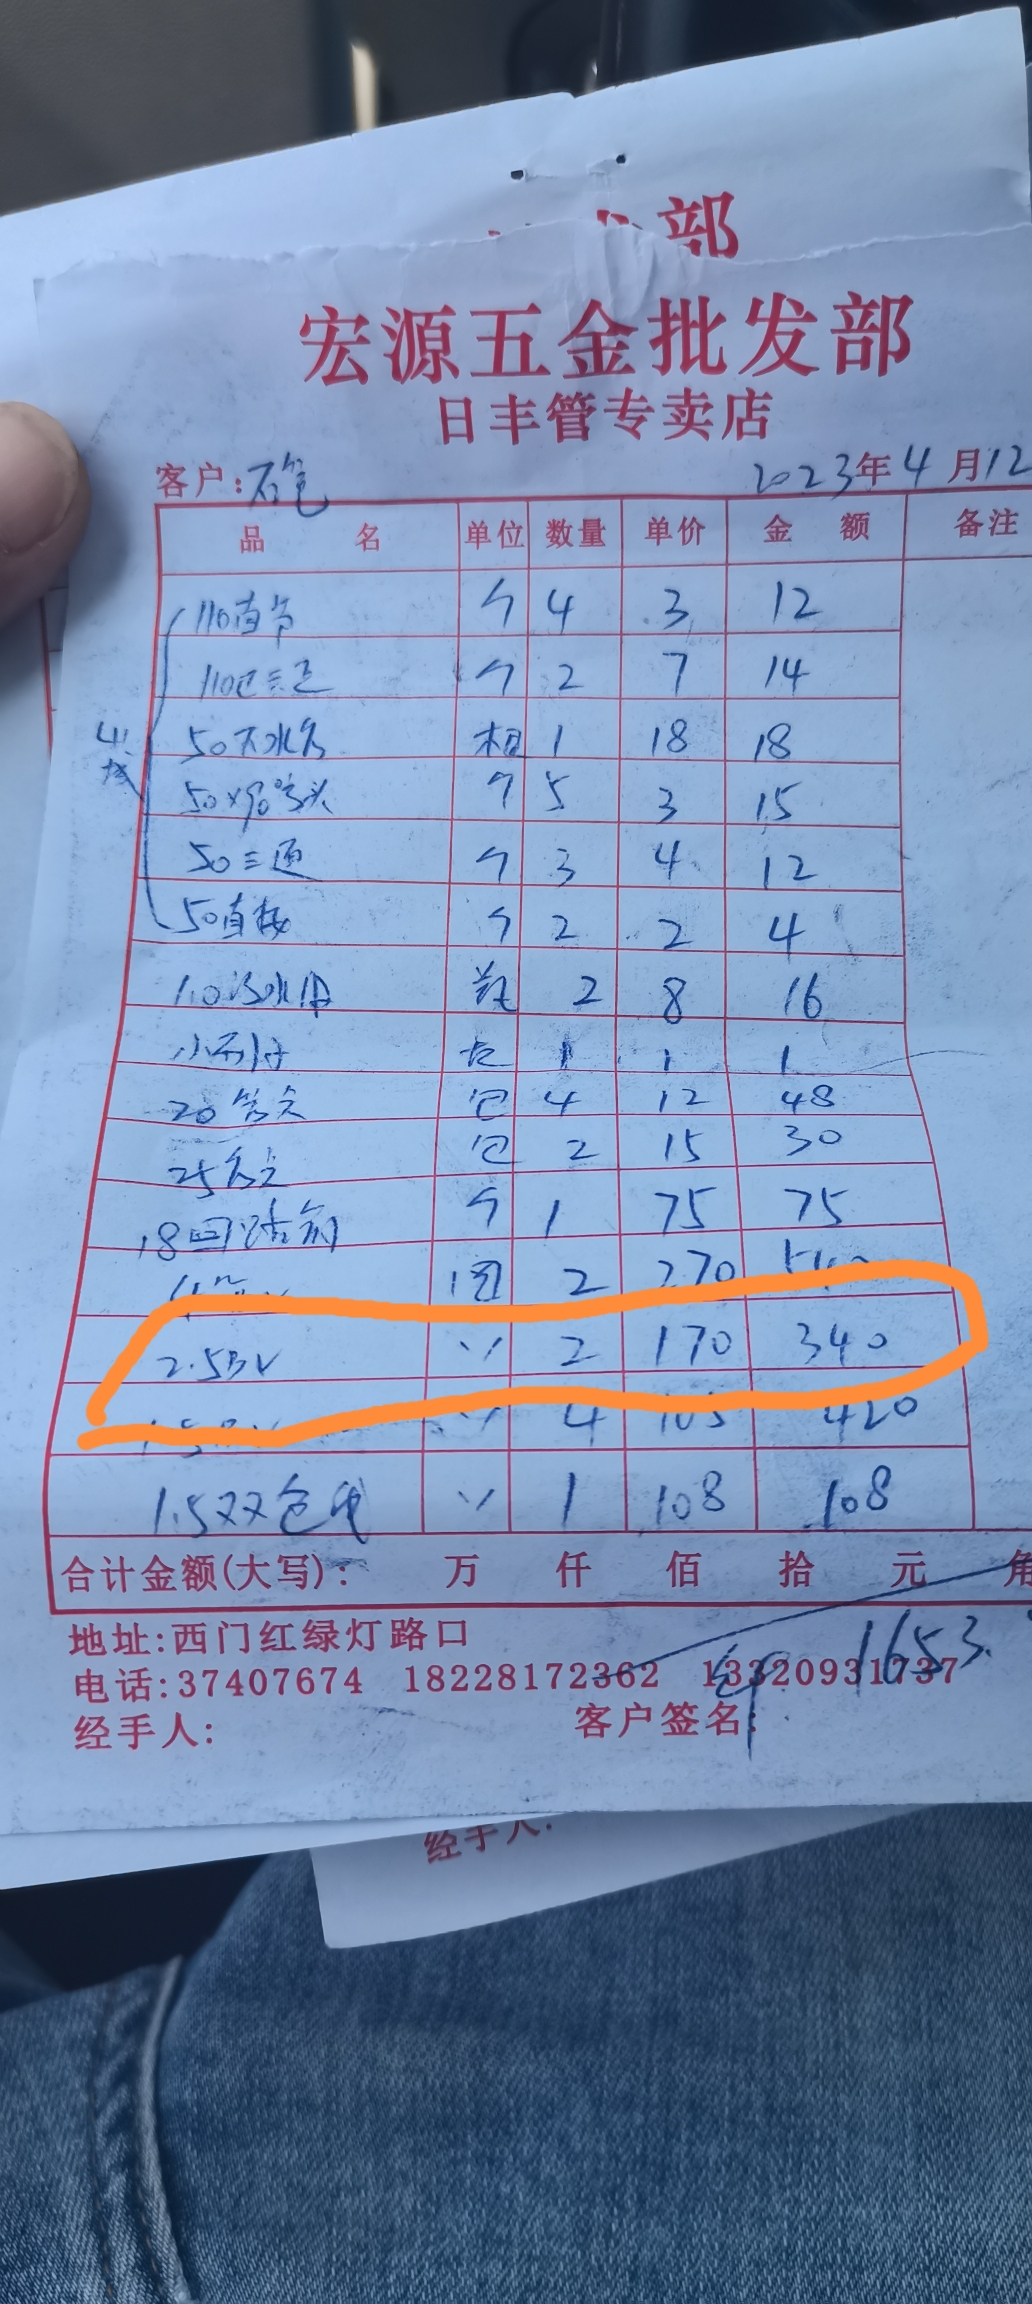 部
宏源五金批发部
日丰管专卖店
客户: 2023年4月12
品名 单位 数量 单价 金额 备注
110直节 个 4 3 12
110 个 2 7 14
50 1 18 18
50×90°弯头 个 5 3 15
50三通 个 3 4 12
50直接 个 2 2 4
瓶 2 8 16
1 1 1
20管卡 包 4 12 48
25管卡 包 2 15 30
18回路箱 个 1 75 75
圈 2 270
2.5BV 〃 2 170 340
〃 4 105 420
1.5双色 〃 1 108 108
合计金额(大写): 万 仟 佰 拾 元 角
1653.
地址:西门红绿灯路口
电话:37407674 18228172362 13320931737
经手人: 客户签名:
经手人: